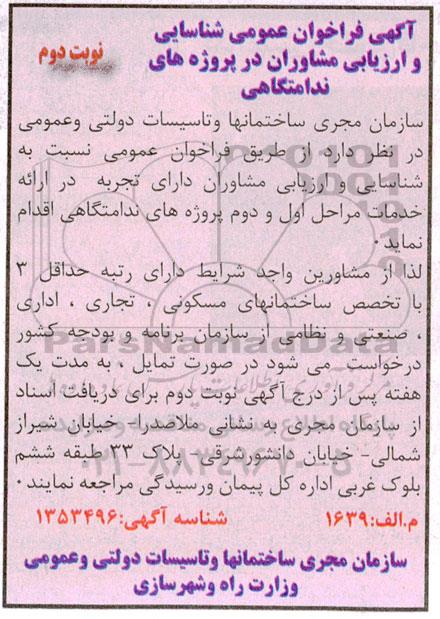 آگهی فراخوان عمومی شناسایی
و ارزیابی مشاوران در پروژه های
ندامتگاهی
نوبت دوم
سازمان مجری ساختمانها وتاسیسات دولتی وعمومی
در نظر دارد از طریق فراخوان عمومی نسبت به
شناسایی و ارزیابی مشاوران دارای تجربه در ارائه
خدمات مراحل اول و دوم پروژه های ندامتگاهی اقدام
نماید۰
لذا از مشاورین واجد شرایط دارای رتبه حداقل ۳
با تخصص ساختمانهای مسکونی ، تجاری ، اداری
، صنعتی و نظامی از سازمان برنامه و بودجه کشور
درخواست می شود در صورت تمایل ، به مدت یک
هفته پس از درج آگهی نوبت دوم برای دریافت اسناد
از سازمان مجری به نشانی ملاصدرا- خیابان شیراز
شمالی- خیابان دانشورشرقی- پلاک ۳۳ طبقه ششم
بلوک غربی اداره کل پیمان ورسیدگی مراجعه نمایند۰
م.الف:۱۶۳۹ شناسه آگهی:۱۳۵۳۴۹۶
سازمان مجری ساختمانها وتاسیسات دولتی وعمومی
وزارت راه وشهرسازی
ParsNamadData
۰۲۱-۸۸۳۴۹۶۷۰-۵